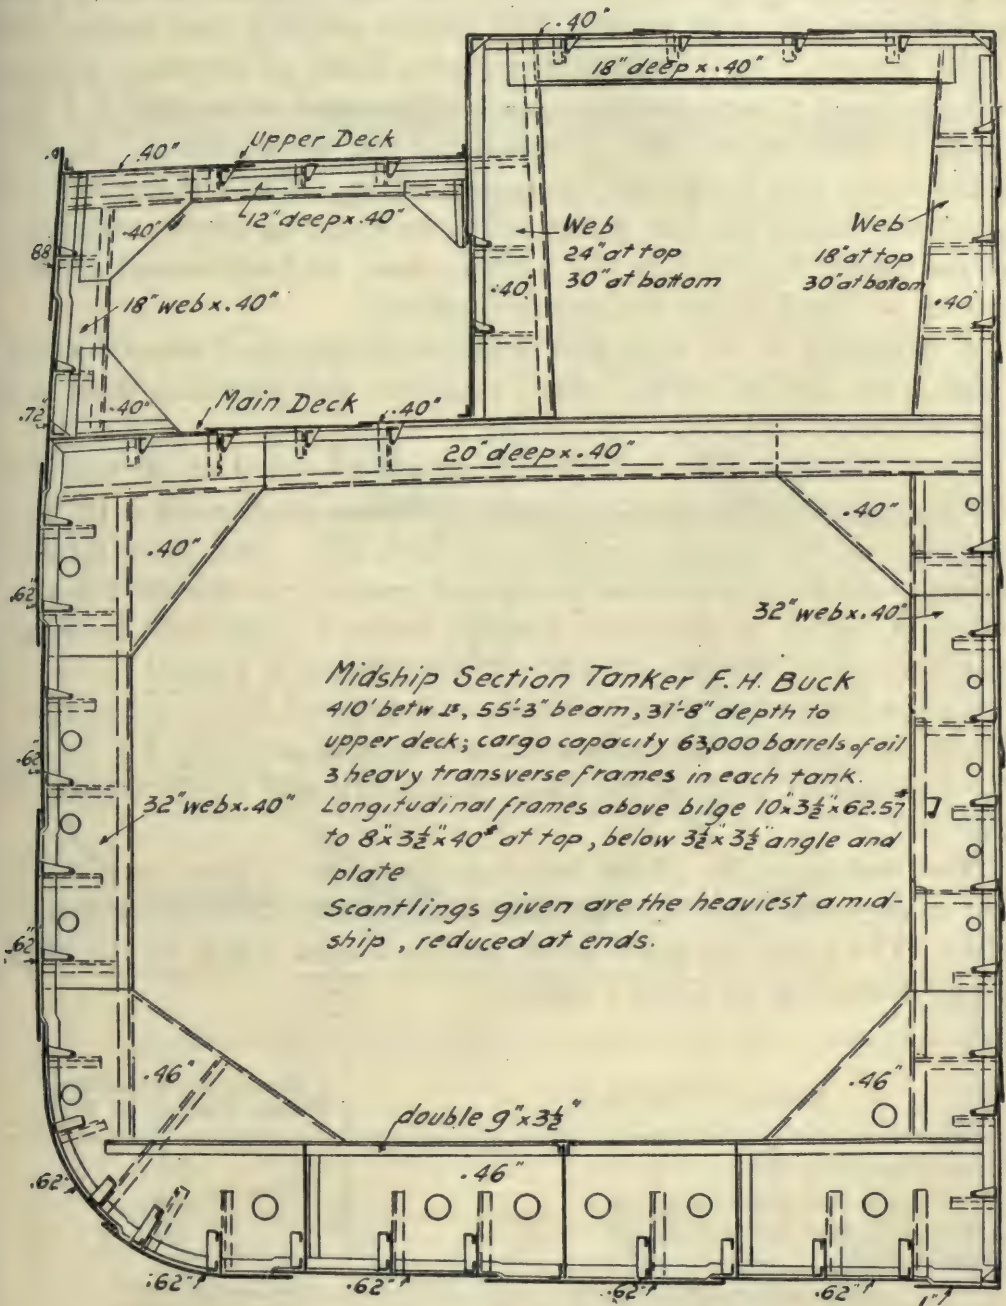 .40"
18" deep x .40"
Upper Deck
.40"
12" deep x .40"
.40"
.88"
18" web x .40"
Web
24" at top
30" at bottom
.40"
Web
18" at top
30" at bottom
.40"
.72"
.40"
Main Deck
.40"
20" deep x .40"
.40"
.40"
.62"
32" web x .40"
Midship Section Tanker F. H. Buck
410' betw , 55'-3" beam, 31'-8" depth to
upper deck; cargo capacity 63,000 barrels of oil
3 heavy transverse frames in each tank.
Longitudinal frames above bilge 10"x3½"x62.57#
to 8"x3½"x40# at top, below 3½"x3½" angle and
plate
Scantlings given are the heaviest amid-
ship, reduced at ends.
.62"
32" web x .40"
.62"
.46"
.46"
double 9"x3½"
.46"
.62"
.62"
.62"
.62"
.62"
1"